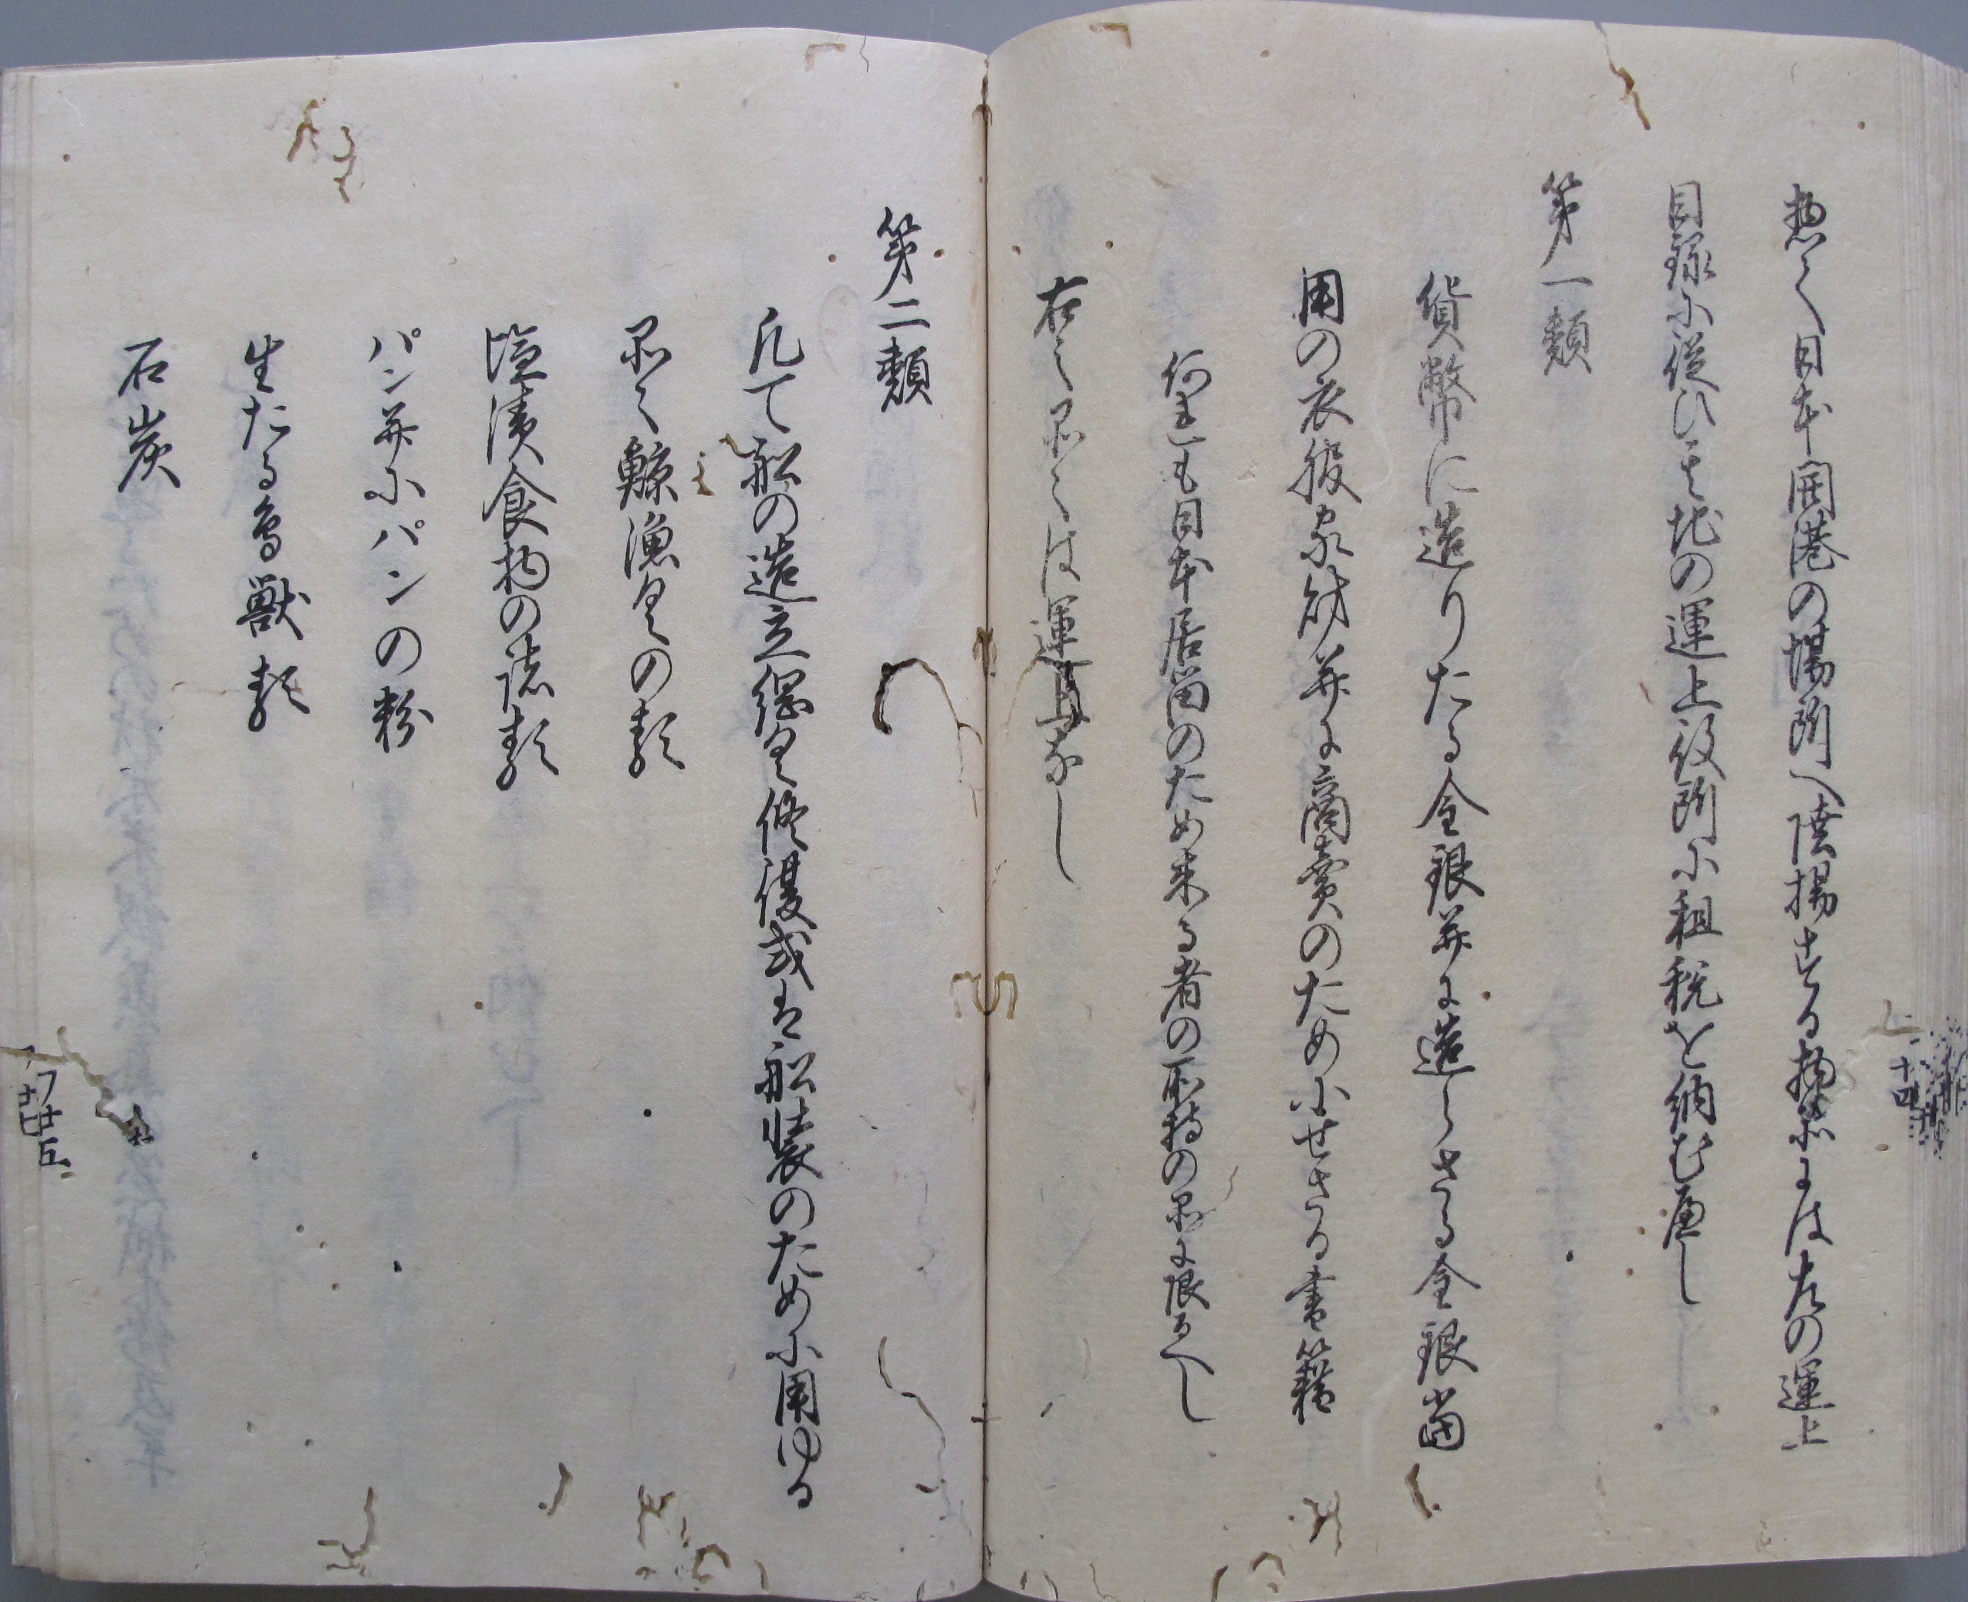 惣て日本開港の場所へ陸揚する物品には左の運上
目録に従ひ其地の運上役所に租税を納む遍し
第一類
貨幣に造りたる金銀并に造らさる金銀當
用の衣服家財并に商賣のために せさる書籍
何連も日本居留のため来る者の所持の品に限るへし
右之品々は運上なし
第二類
凡て船の造立綱具修復或は船装のために用ゆる
品々鯨漁具の類
塩漬食物の諸類
パン并にパンの粉
生たる鳥獣類
石炭
十四
廿五